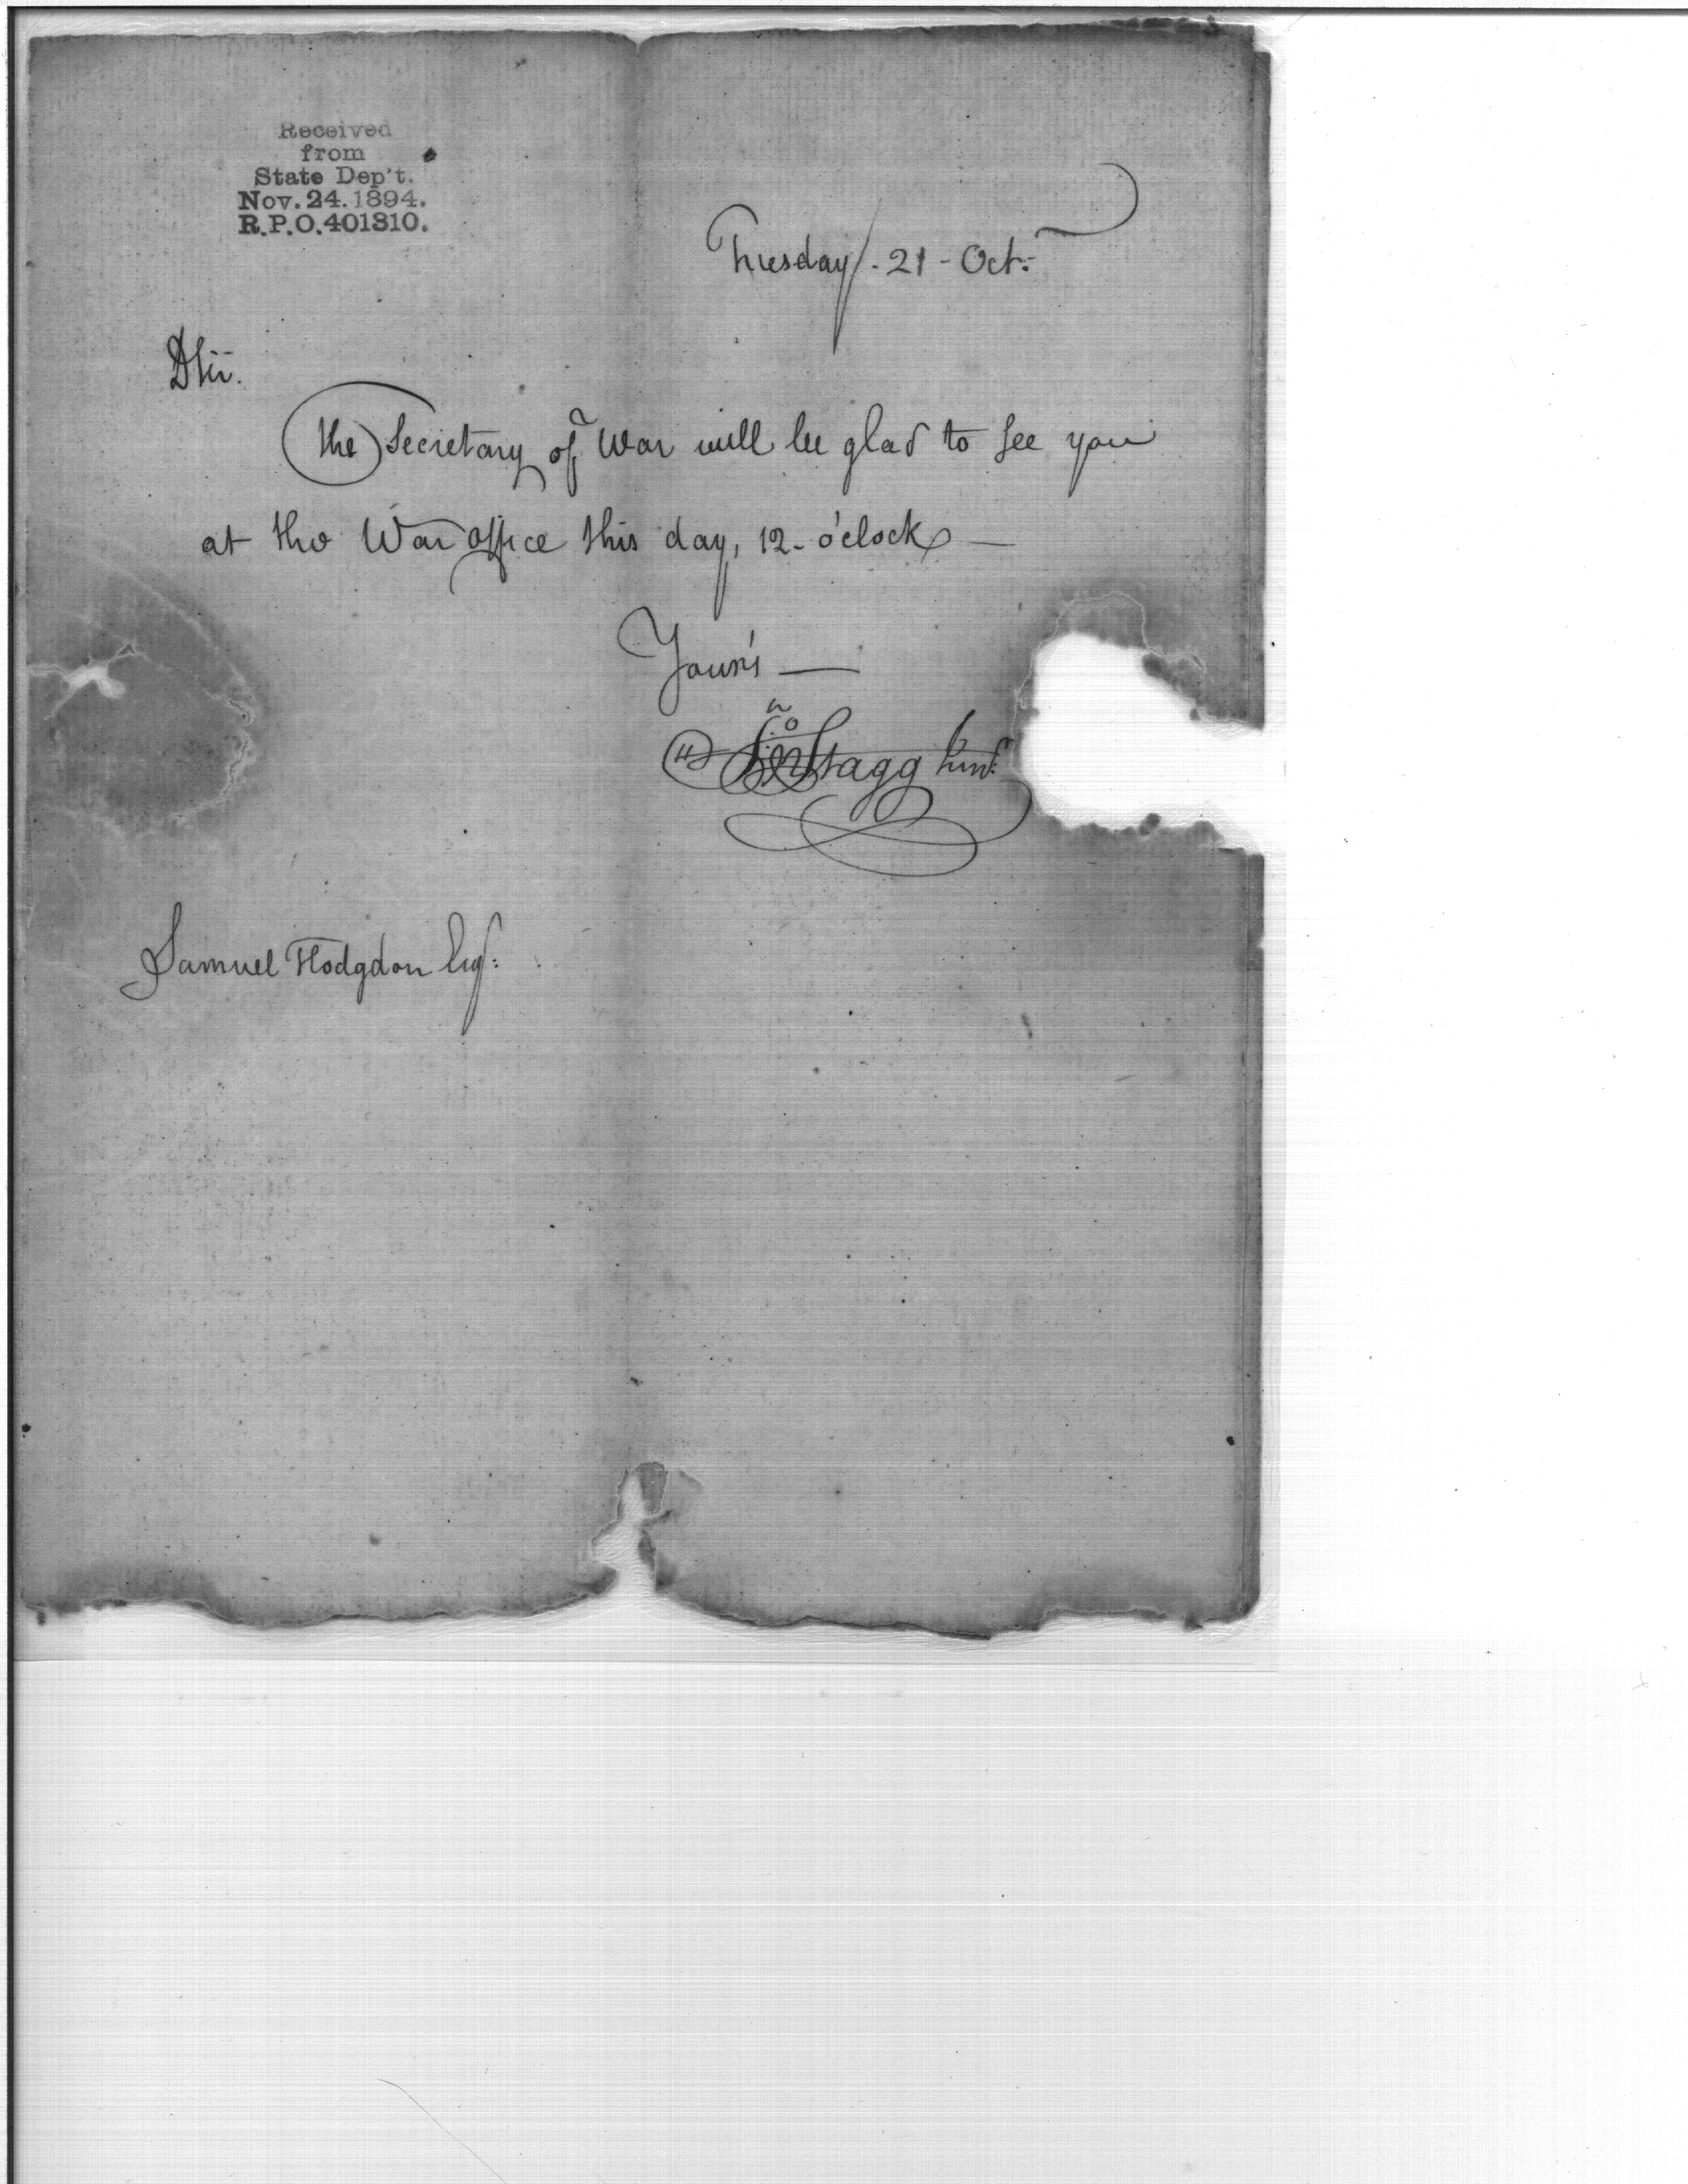 Received
from
State Dep't.
Nov. 24. 1894.
R.P.O. 401310.
Tuesday - 21 - Oct:
DSir.
The Secretary of War will be glad to see you
at the War office this day, 12 - o'clock —
Your's —
Jno Stagg Junr:
Samuel Hodgdon Esqr: